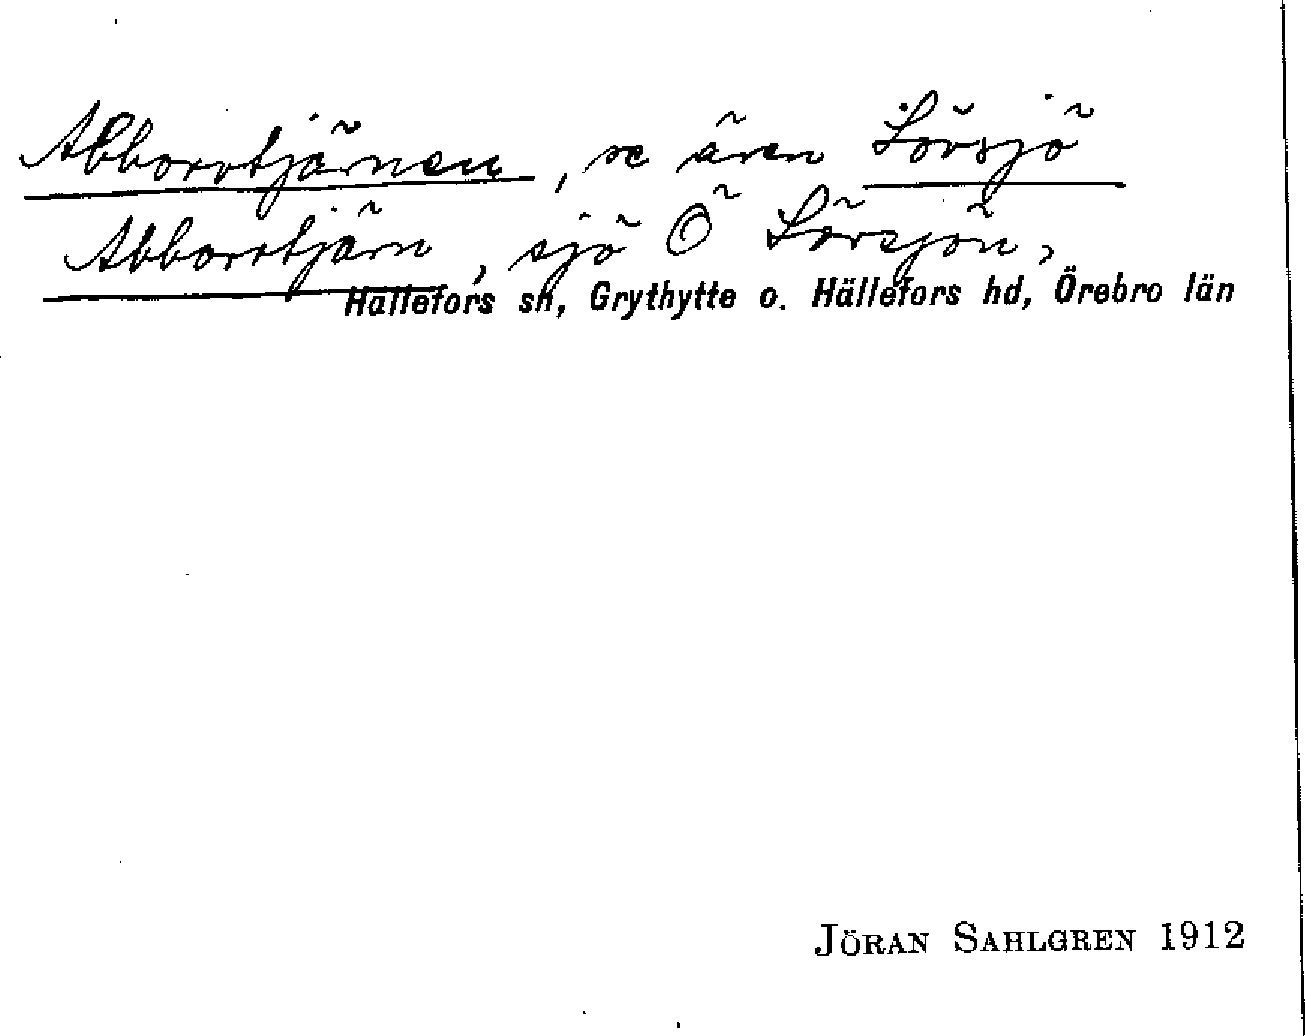 Abborrtjärnen, se även Lövsjö
Abborrtjärn, sjö Ö Lövsjön,
Hällefors sn, Grythytte o. Hällefors hd, Örebro län
JÖRAN SAHLGREN 1912